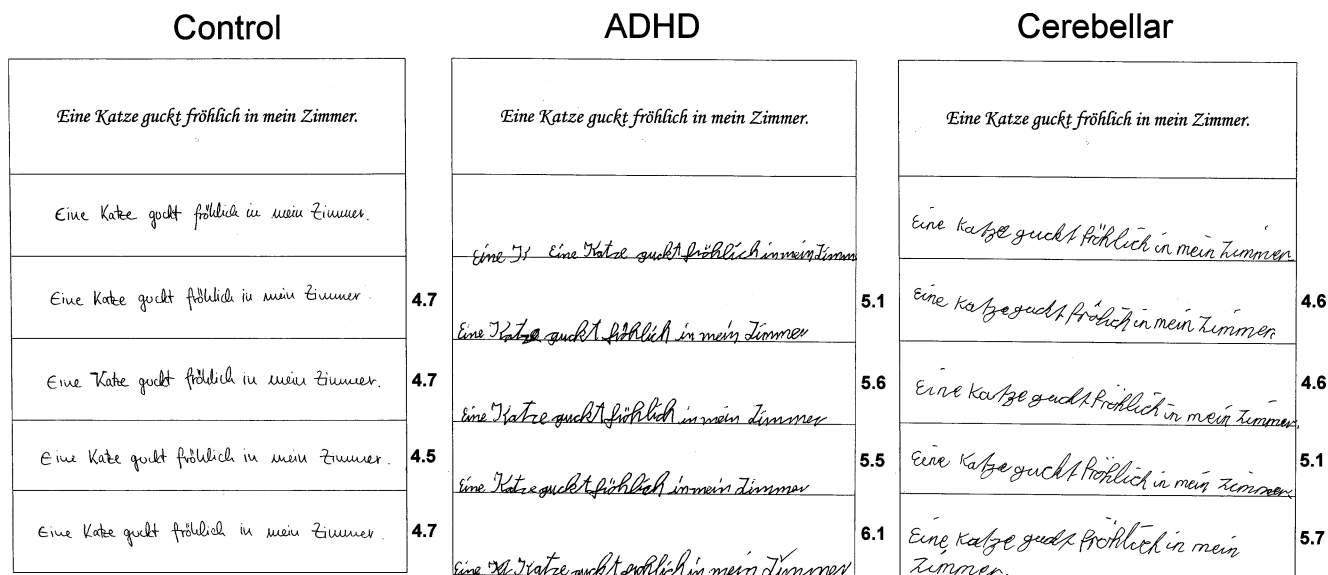 Control
Eine Katze guckt fröhlich in mein Zimmer.
Eine Katze guckt fröhlich in mein Zimmer.
Eine Katze guckt fröhlich in mein Zimmer.
4.7
Eine Katze guckt fröhlich in mein Zimmer.
4.7
Eine Katze guckt fröhlich in mein Zimmer.
4.5
Eine Katze guckt fröhlich in mein Zimmer.
4.7
ADHD
Eine Katze guckt fröhlich in mein Zimmer.
Eine K Eine Katze guckt fröhlich in mein Zimm
5.1
Eine Katze guckt fröhlich in mein Zimmer
5.6
Eine Katze guckt fröhlich in mein Zimmer
5.5
Eine Katze guckt fröhlich in mein Zimmer
6.1
Eine Katze guckt fröhlich in mein Zimmer
Cerebellar
Eine Katze guckt fröhlich in mein Zimmer.
Eine Katze guckt fröhlich in mein Zimmer.
Eine Katze guckt fröhlich in mein Zimmer.
4.6
Eine Katze guckt fröhlich in mein Zimmer.
4.6
Eine Katze guckt fröhlich in mein Zimmer
5.1
Eine Katze guckt fröhlich in mein
Zimmer.
5.7